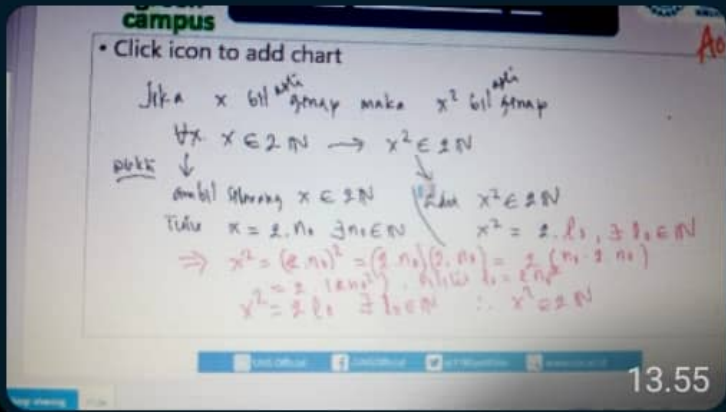 campus
• Click icon to add chart
Jika x bil asli genap maka x² bil asli genap
∀x x ∈ 2ℕ → x² ∈ 2ℕ
Bukti
ambil sebarang x ∈ 2ℕ x² ∈ 2ℕ
Tulis x = 2.n₀ ∃n₀∈ℕ x² = 2.l₀, ∃ l₀∈ℕ
⇒ x² = (2.n₀)² = (2.n₀)(2.n₀) = 2(n₀.2 n₀)
= 2.(2n₀²), l₀ = 2n₀²
x² = 2l₀ ∃ l₀∈ℕ ∴ x² ∈ 2ℕ
13.55